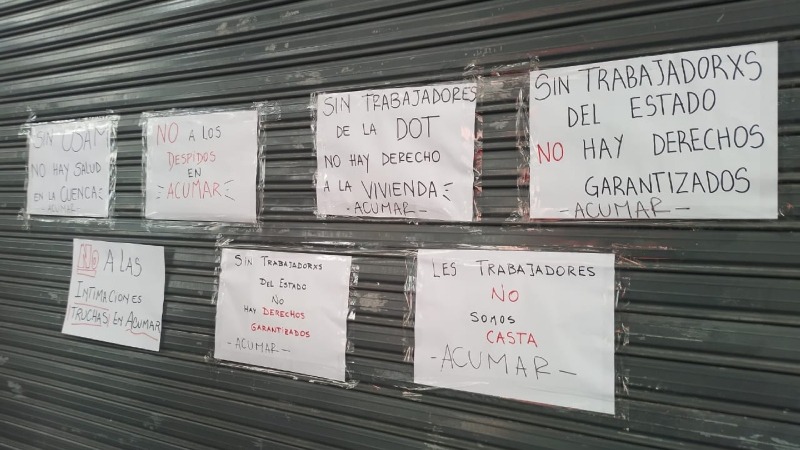 SIN UOAM
NO HAY SALUD
EN LA CUENCA
-ACUMAR-
NO A LOS
DESPIDOS
EN
ACUMAR
SIN TRABAJADORES
DE LA DOT
NO HAY DERECHO
A LA VIVIENDA
-ACUMAR-
SIN TRABAJADORXS
DEL ESTADO
NO HAY DERECHOS
GARANTIZADOS
-ACUMAR-
NO A LAS
INTIMACIONES
TRUCHAS EN ACUMAR
SIN TRABAJADORXS
DEL ESTADO
NO
HAY DERECHOS
GARANTIZADOS
-ACUMAR-
LES TRABAJADORES
NO
SOMOS
CASTA
-ACUMAR-